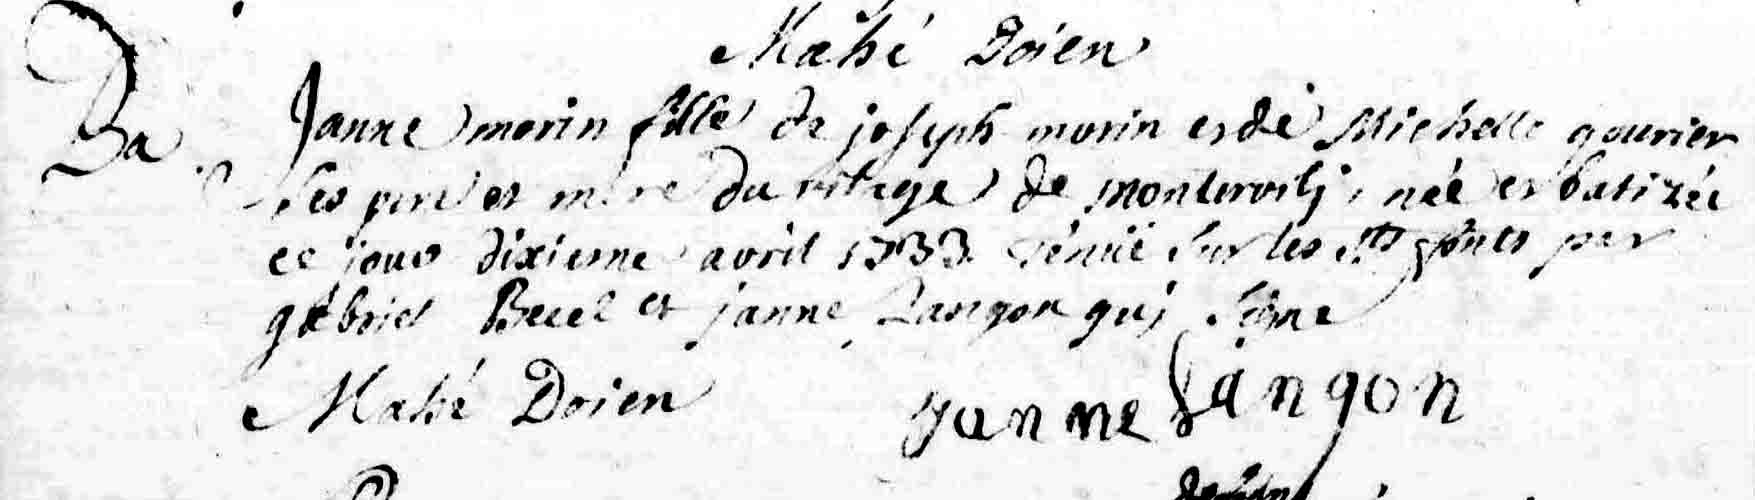 Mahé Doien
Ba Janne morin fille de joseph morin et de Michelle gourier
ses pere et mere du vilage de montervily, née et batizée
ce jour dixieme avril 1733 tenüe sur les sts fonts par
gabriel Becel et janne Langon quj signe
Mahé Doien janne Langon